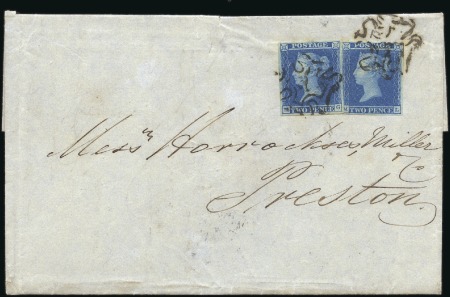 POSTAGE POSTAGE
TWO PENCE TWO PENCE
Mess^rs Horrockses, Miller
& Co
Preston